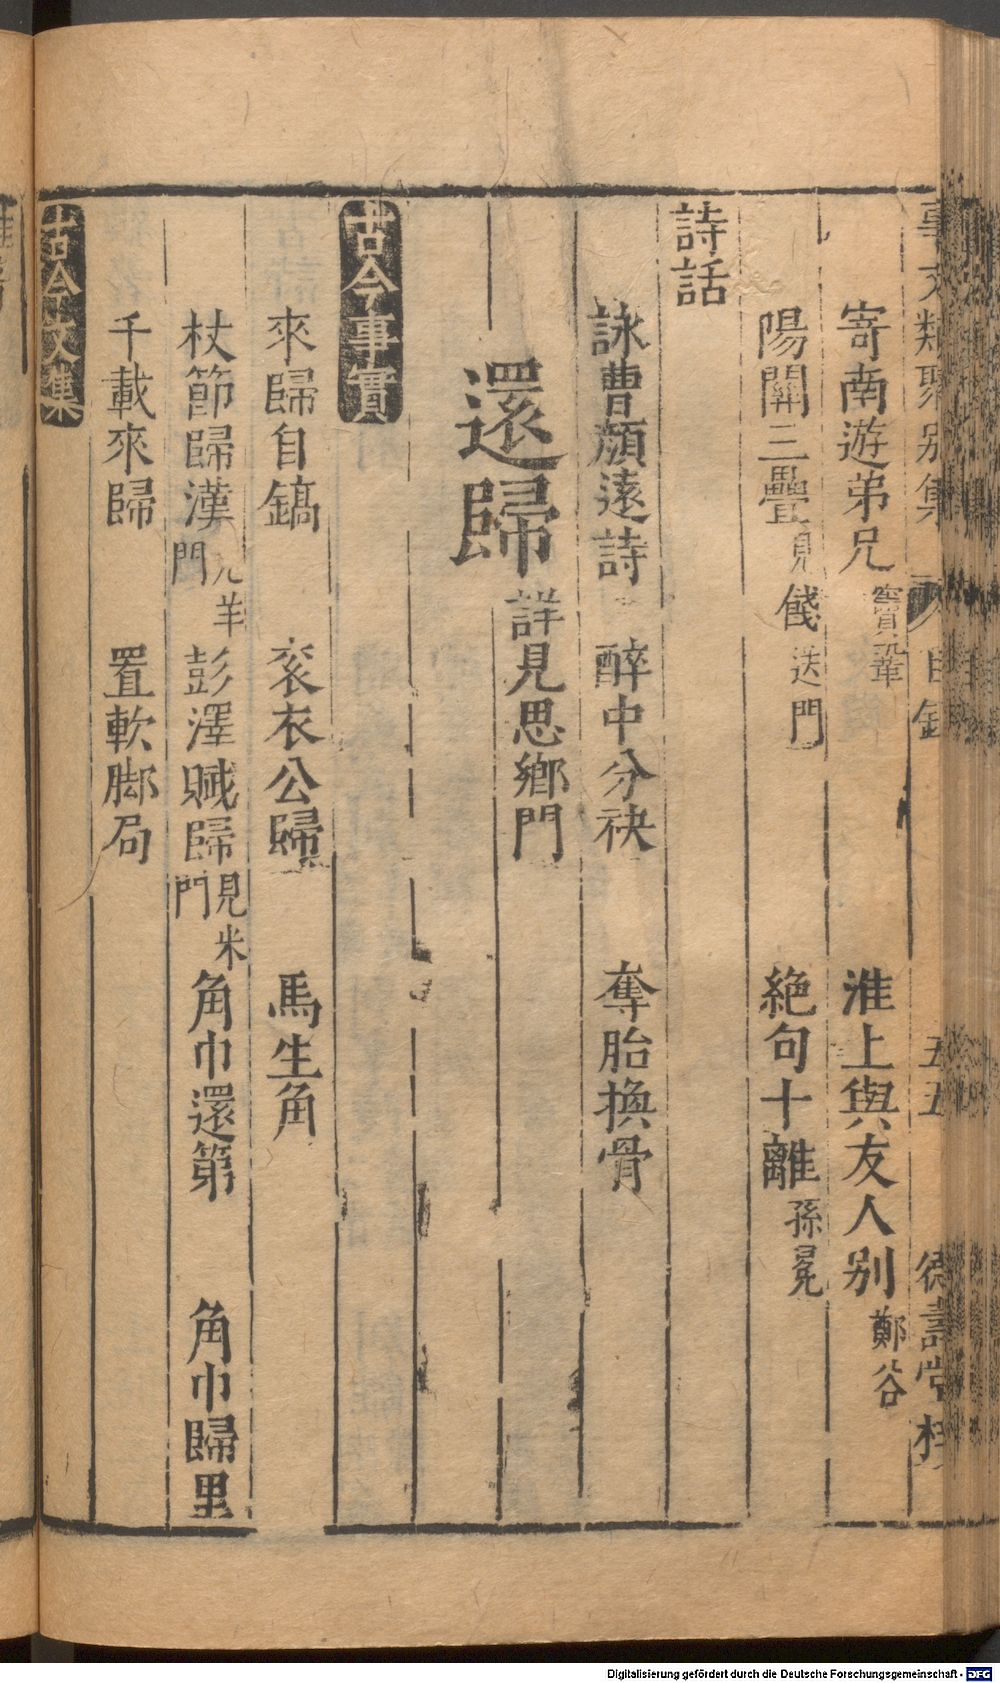 事文類聚别集 目錄 五五 德壽堂梓
寄南遊弟兄 竇鞏 淮上與友人别 鄭谷
陽關三疊 見餞送門 絶句十離 孫冕
詩話
詠曹顔遠詩 醉中分袂 奪胎換骨
還歸 詳見思鄉門
古今事實
來歸自鎬 衮衣公歸 馬生角
杖節歸漢 見羊門 彭澤賦歸 見米門 角巾還第 角巾歸里
千載來歸 置軟脚局
古今文集
Digitalisierung gefördert durch die Deutsche Forschungsgemeinschaft - DFG